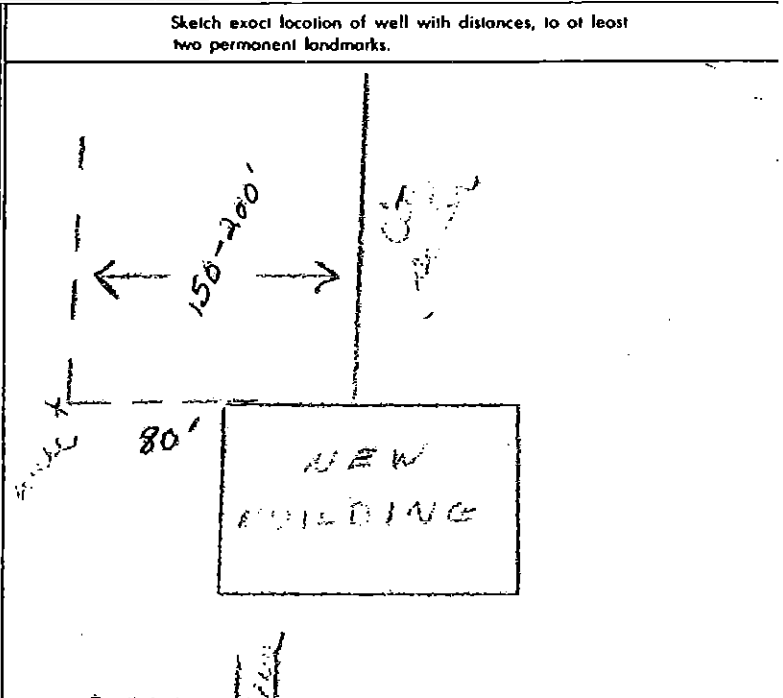 Sketch exact location of well with distances, to at least
two permanent landmarks.
150-200'
80'
well
NEW
BUILDING